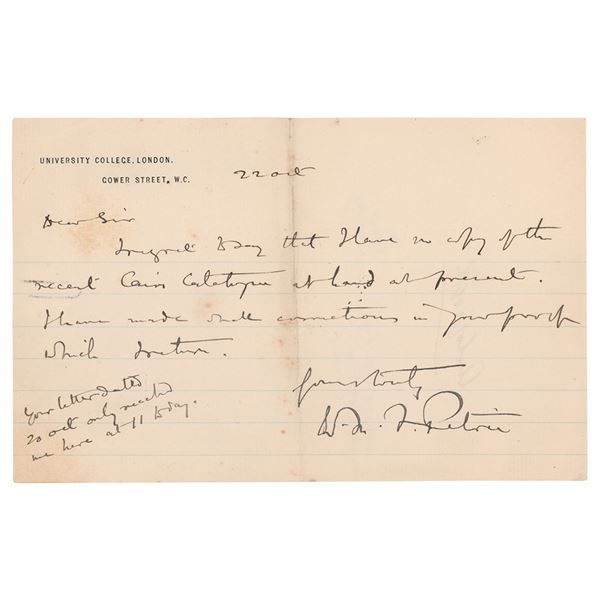 UNIVERSITY COLLEGE, LONDON.
GOWER STREET, W.C.
22 Oct
Dear Sir
I regret to say that I have no copy of the
recent Cairo Catalogue at hand at present.
I have made small corrections in your proof
which I return.
Yours truly
W. M. F. Petrie
Your letter dated
20 Oct only reached
me here at 11 to day.